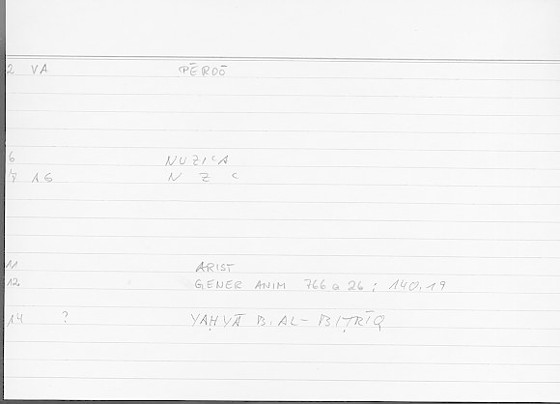 2 VA PĒROŌ
6 NUZIʿA
8 AS N Z ʿ
11 ARIST
12 GENER ANIM 766 a 26 ; 140,19
14 ? YAḤYĀ B. AL-BIṬRĪQ